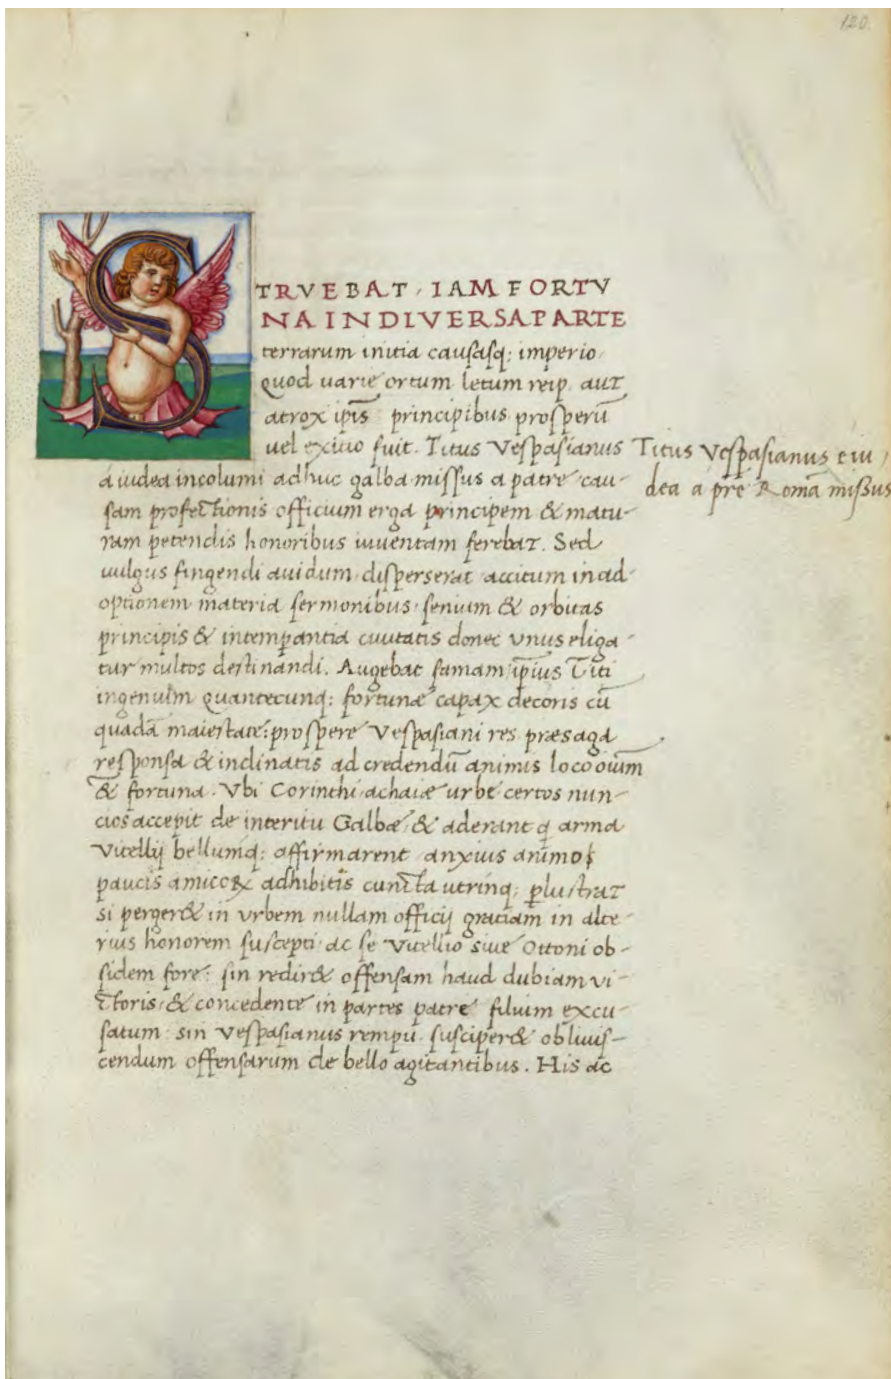 120
S
TRVEBAT, IAM FORTV
NA IN DIVERSA PARTE
terrarum initia causasq; imperio
quod uarie ortum letum reip. aut
atrox ip̅is principibus prosperu̅
uel exitio fuit. Titus Vespasianus
Titus Vespasianus e iu
dea a pr̅e Roma̅ missus
a iudea incolumi adhuc galba missus a patre cau-
sam profectionis officium erga principem & matu-
ram petendis honoribus iuuentam ferebat. Sed
uulgus fingendi auidum disperserat accitum in ad
optionem materia sermonibus senium & orbitas
principis & intemp̱antia ciuitatis donec unus eliga-
tur multos destinandi. Augebat famam ip̅ius Titi
ingenium quantecunq; fortunæ capax decoris cu̅
quada̅ maiestate: prospere Vespasiani res præsaga
responsa & inclinatis ad credendu̅ animis loco oi̅um
& fortuna. Vbi Corinthi achaiæ urbe certos nun-
cios accepit de interitu Galbæ, & aderant q̇ arma
Vitellij bellumq; affirmarent anxius animo
paucis amicoꝝ adhibitis cuncta utrinq; p̱lustrat
si perger& in urbem nullam officij gratiam in alte-
rius honorem suscepti ac se Vitellio siue Ottoni ob-
sidem fore: sin redir& offensam haud dubiam vi-
ctoris, & concedente in partes patre filium excu-
satum: sin Vespasianus rempu. susciper& obliuis-
cendum offensarum de bello agitantibus. His ac